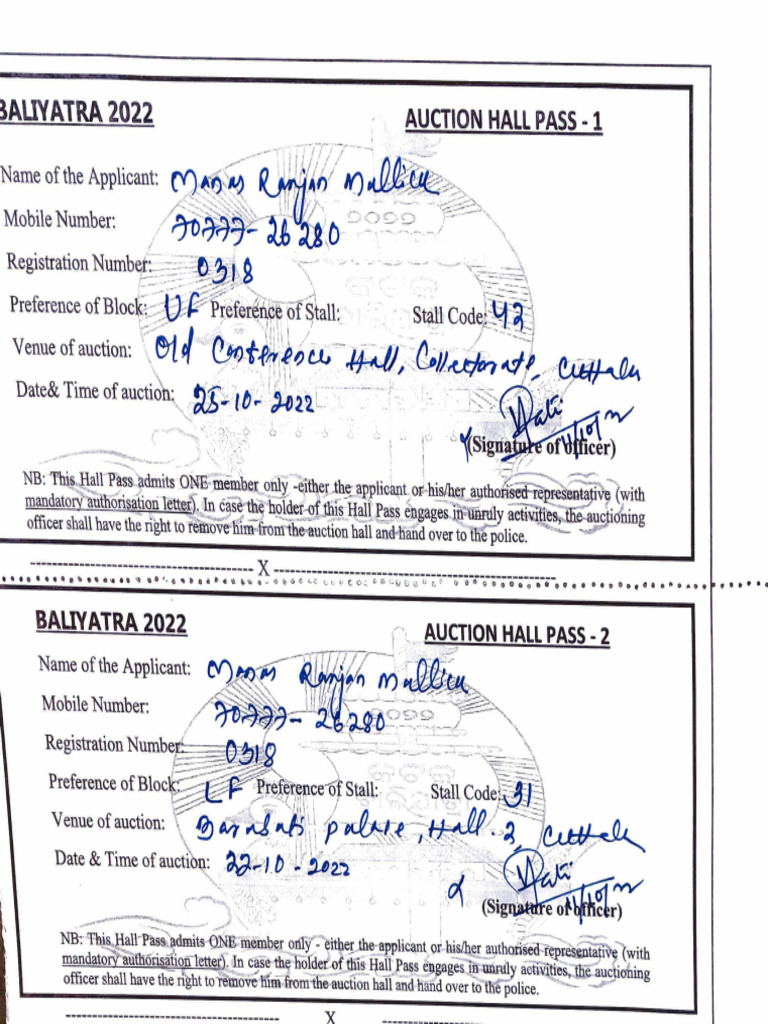 BALIYATRA 2022 AUCTION HALL PASS - 1
Name of the Applicant: Manas Ranjan Mallick
Mobile Number: 70777-26280
Registration Number: 0318
Preference of Block: UF Preference of Stall: Stall Code: 43
Venue of auction: Old Conference Hall, Collectorate, Cuttack
Date& Time of auction: 25-10-2022
(Signature of officer)
NB: This Hall Pass admits ONE member only -either the applicant or his/her authorised representative (with
mandatory authorisation letter). In case the holder of this Hall Pass engages in unruly activities, the auctioning
officer shall have the right to remove him from the auction hall and hand over to the police.
X
BALIYATRA 2022 AUCTION HALL PASS - 2
Name of the Applicant: Manas Ranjan Mallick
Mobile Number: 70777-26280
Registration Number: 0318
Preference of Block: LF Preference of Stall: Stall Code: 31
Venue of auction: Barabati palace, Hall-2, Cuttack
Date & Time of auction: 22-10-2022
(Signature of officer)
NB: This Hall Pass admits ONE member only - either the applicant or his/her authorised representative (with
mandatory authorisation letter). In case the holder of this Hall Pass engages in unruly activities, the auctioning
officer shall have the right to remove him from the auction hall and hand over to the police.
X